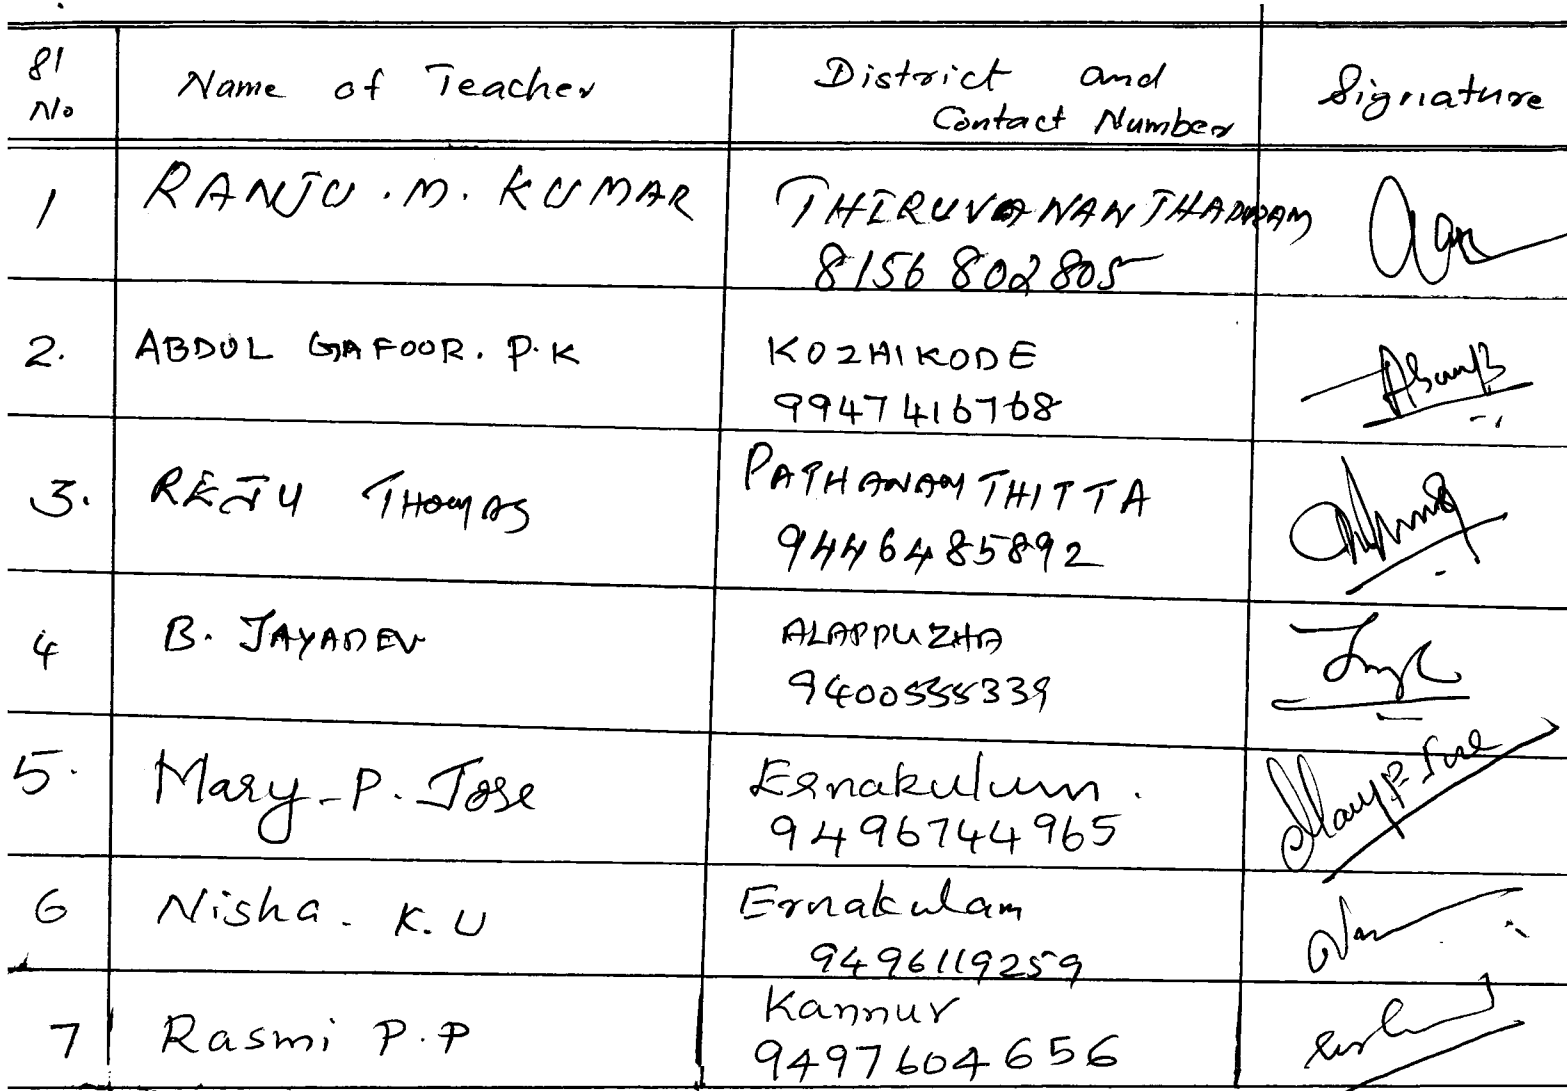 Sl No Name of Teacher District and Contact Number Signature
1 RANJU . M. KUMAR THIRUVANANTHAPURAM
8156 802805
2. ABDUL GAFOOR. P.K KOZHIKODE
9947416768
3. REJU THOMAS PATHANAMTHITTA
9446485892
4 B. JAYADEV ALAPPUZHA
9400555339
5. Mary P. Jose Ernakulum.
9496744965
6 Nisha. K.U Ernakulam
9496119259
7 Rasmi P.P Kannur
9497604656